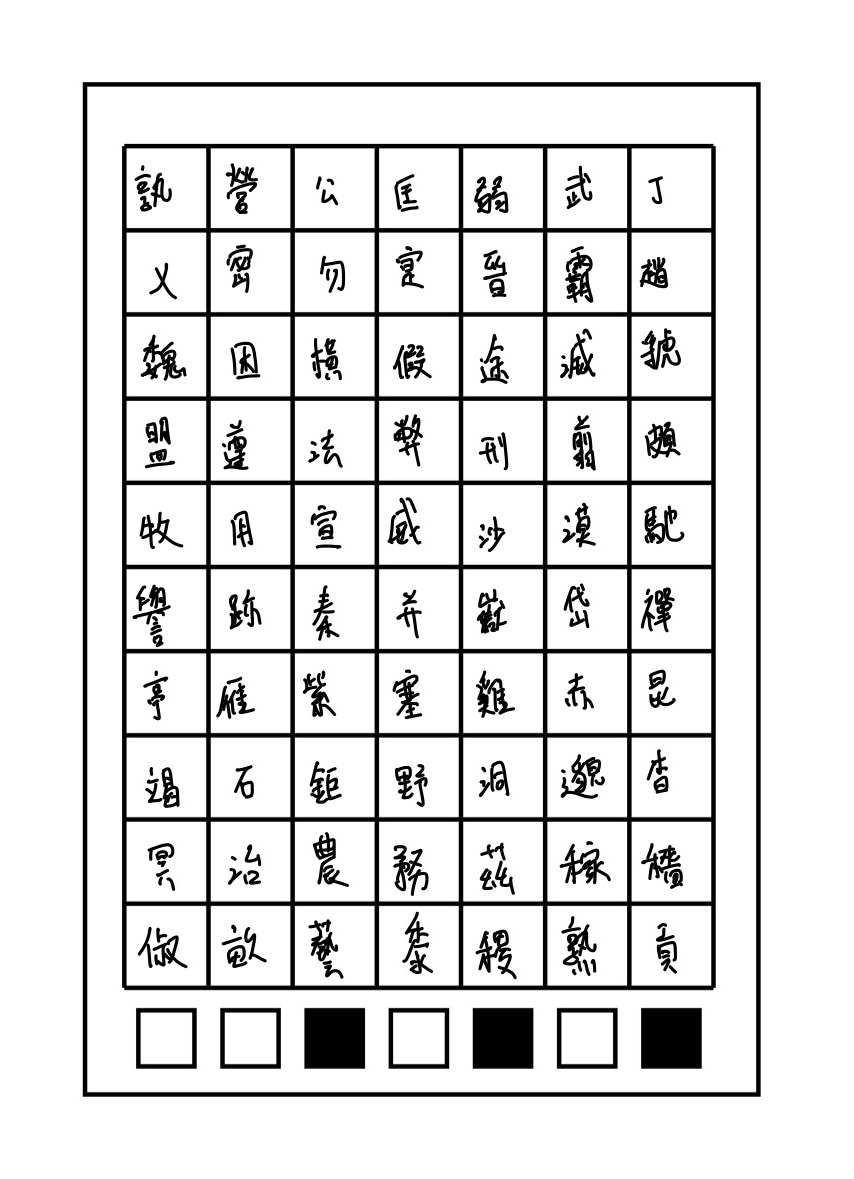 孰營公匡弱武丁
乂密勿寔晉霸趙
魏困橫假途滅虢
盟遵法弊刑翦頗
牧用宣威沙漠馳
譽跡秦并嶽岱禪
亭雁紫塞雞赤昆
竭石鉅野洞邈杳
冥治農務茲稼穡
俶畝藝黍稷熟貢